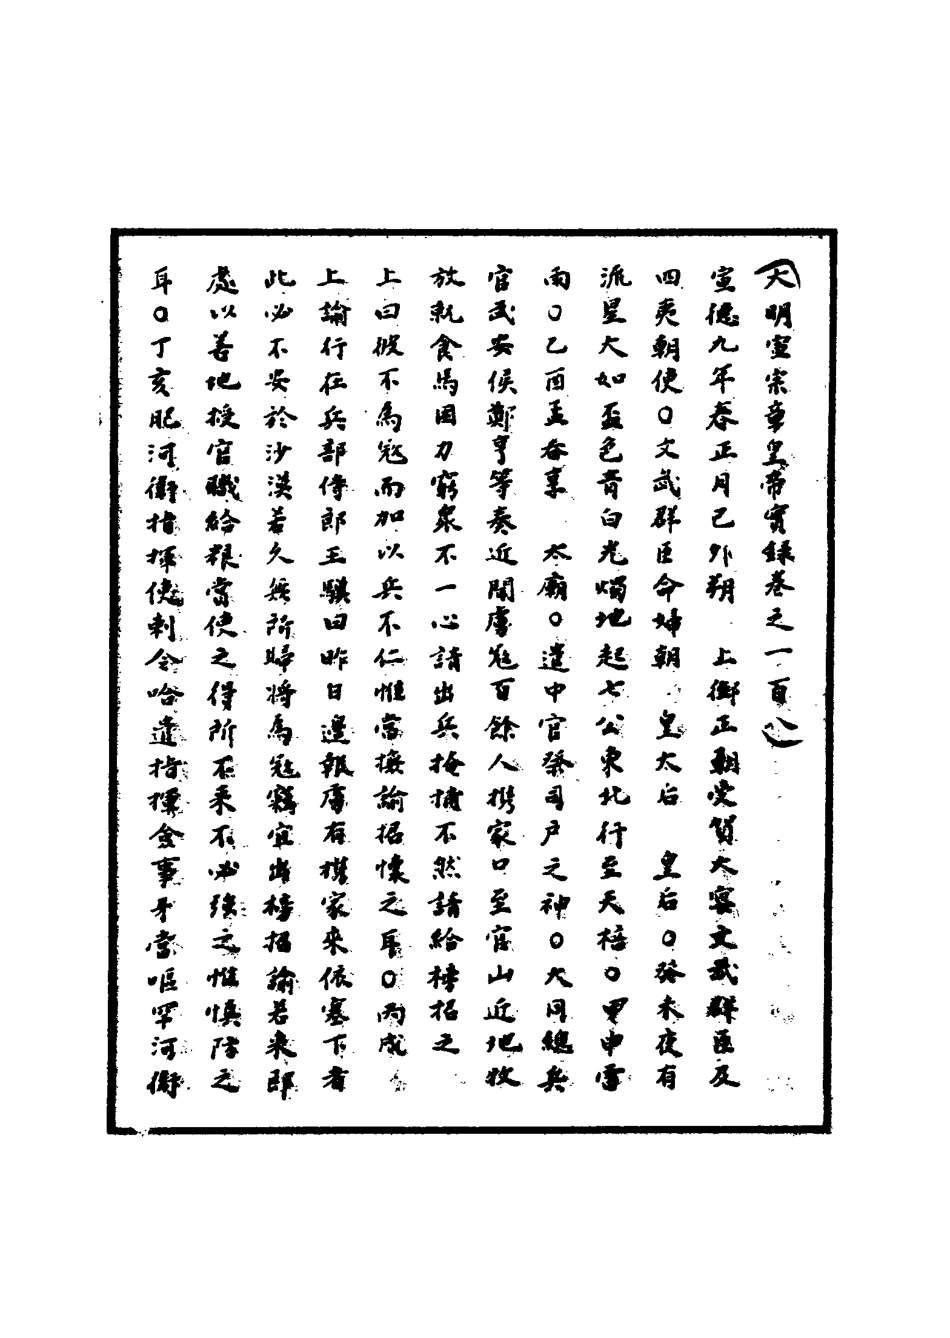 大明宣宗章皇帝實録卷之一百八
宣德九年春正月己夘朔　上御正朝受賀大宴文武群臣及
四夷朝使○文武群臣命婦朝　皇太后　皇后○癸未夜有
流星大如盃色青白光燭地起七公東北行至天棓○甲申雪
雨○乙酉孟春享　太廟○遣中官祭司户之神○大同總兵
官武安侯鄭亨等奏近聞虜冦百餘人携家口至官山近地牧
放就食馬困力窮衆不一心請出兵掩捕不然請給榜招之
上曰彼不為冦而加以兵不仁惟當撫諭招懷之耳○丙戍
上諭行在兵部侍郎王驥曰昨日邊報虜有携家來依塞下者
此必不安於沙漠若久無所歸將為冦竊宜出榜招諭若來郎
處以善地授官職給粮當使之得所不来不必強之惟慎防之
耳○丁亥肥河衛指揮使剌令哈遣指揮僉事牙當嘔罕河衛